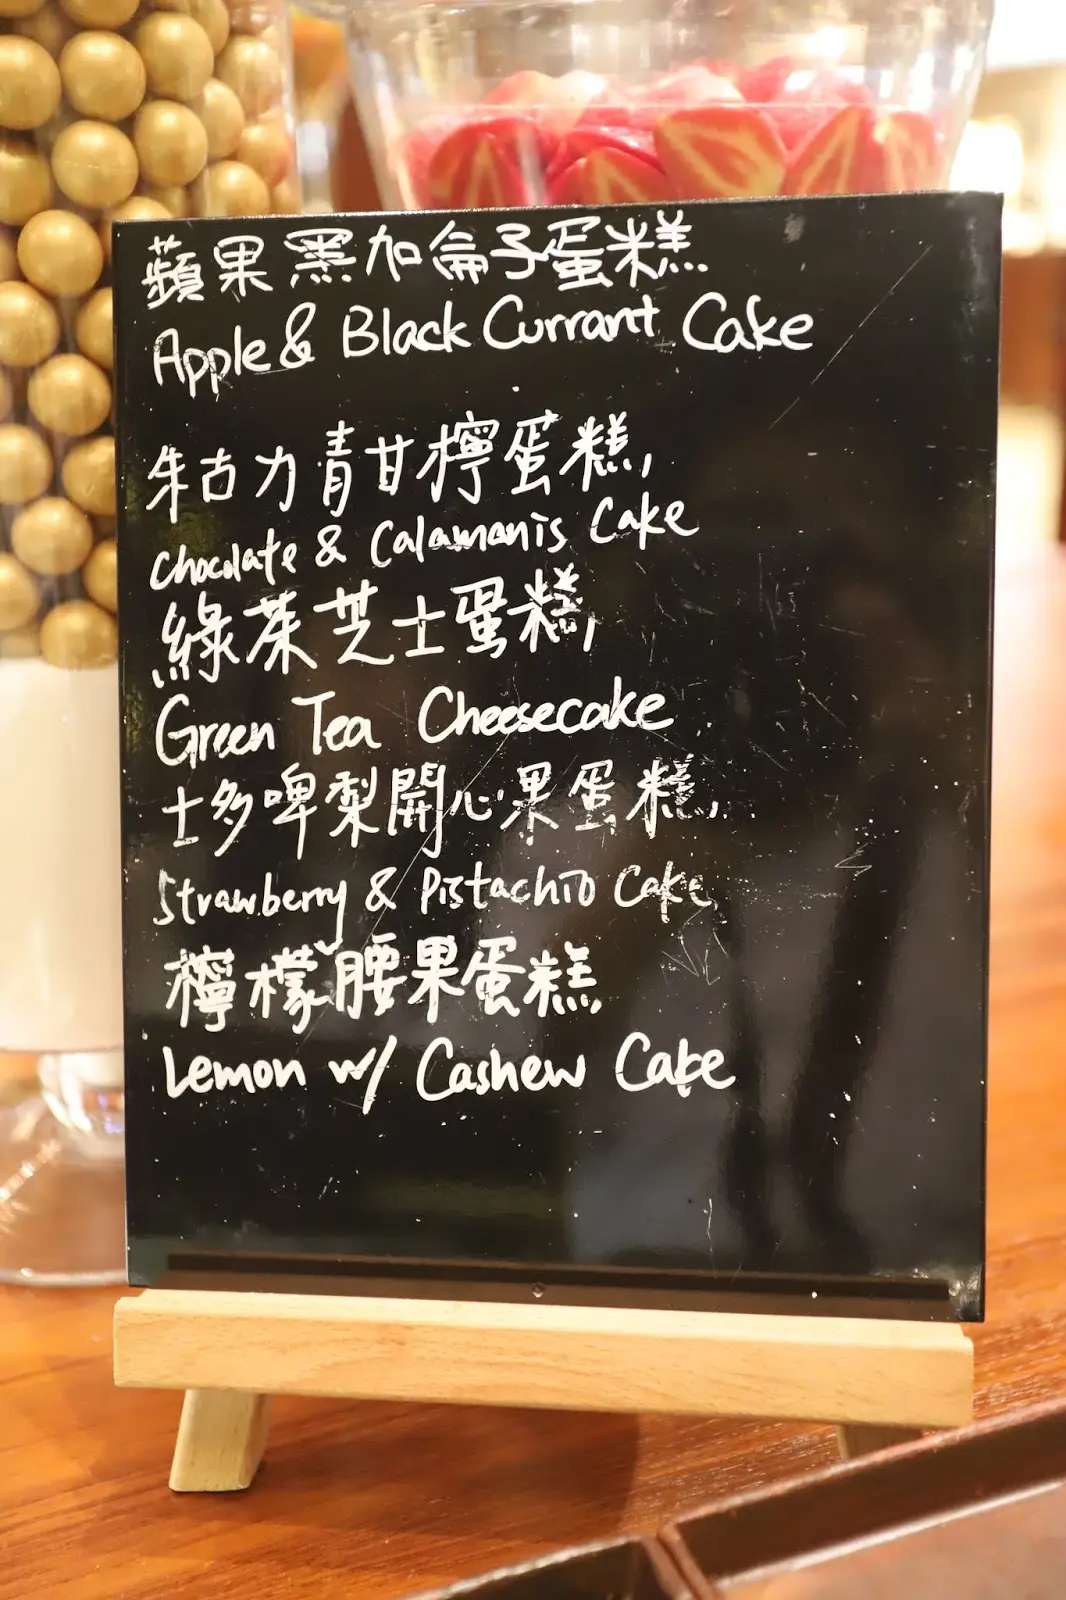 蘋果黑加侖子蛋糕
Apple & Black Currant Cake
朱古力青甘檸蛋糕
Chocolate & Calamanis Cake
綠茶芝士蛋糕
Green Tea Cheesecake
士多啤梨開心果蛋糕
Strawberry & Pistachio Cake
檸檬腰果蛋糕
Lemon w/ Cashew Cake